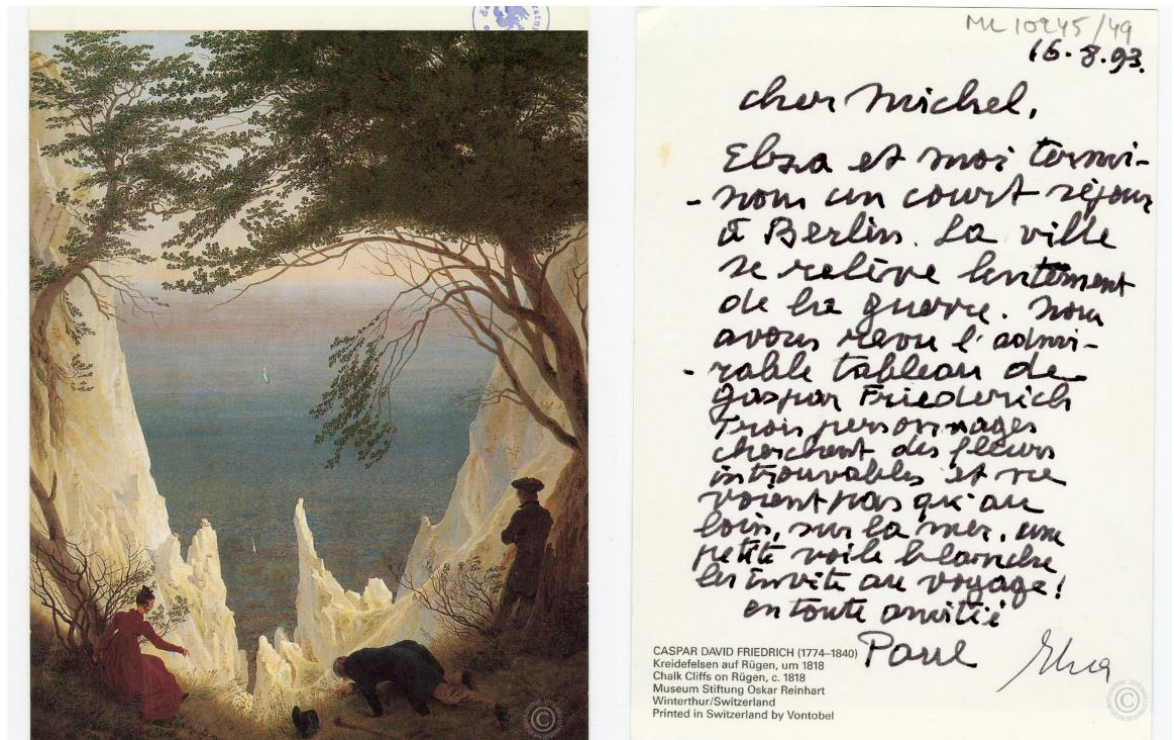 ML 10245/49
16.8.93.
cher Michel,
Elza et moi termi-
-nons un court séjour
à Berlin. La ville
se relève lentement
de la guerre. Nous
avons revu l'admi-
-rable tableau de
Gaspar Friederich
Trois personnages
cherchent des fleurs
introuvables et ne
voient pas qu'au
loin, sur la mer, une
petite voile blanche
les invite au voyage!
en toute amitié
Paul
Elza
CASPAR DAVID FRIEDRICH (1774–1840)
Kreidefelsen auf Rügen, um 1818
Chalk Cliffs on Rügen, c. 1818
Museum Stiftung Oskar Reinhart
Winterthur/Switzerland
Printed in Switzerland by Vontobel